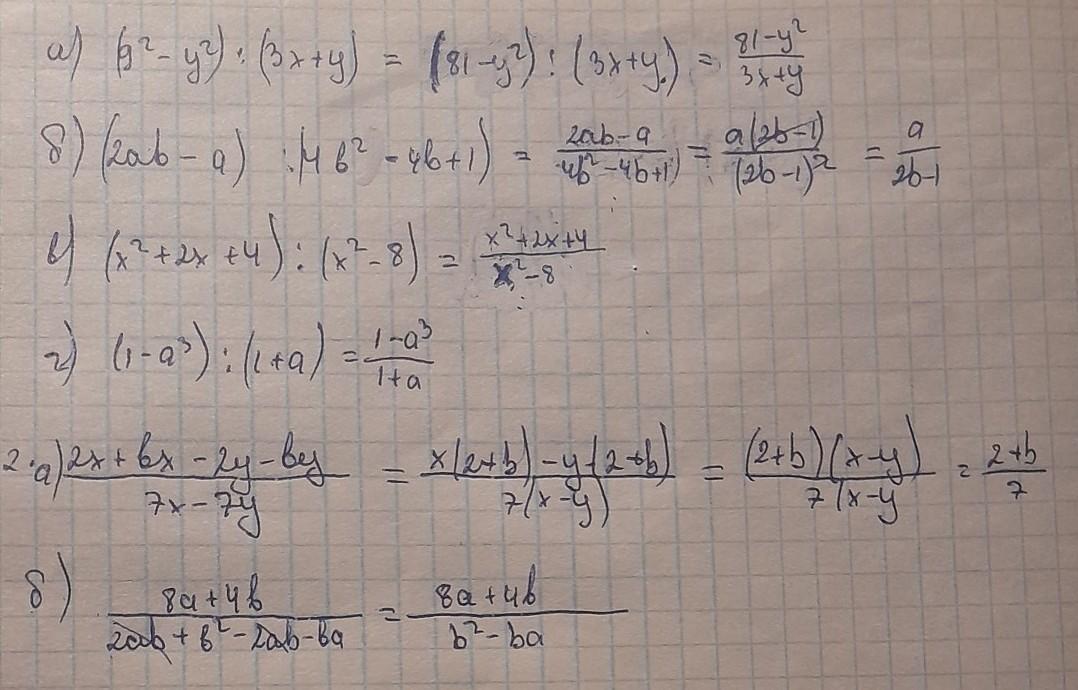 а) (9² - y²) : (3x+y) = (81-y²) : (3x+y) = \frac{81-y²}{3x+y}
б) (2ab - a) : (4b² - 4b+1) = \frac{2ab-a}{4b²-4b+1)} = \frac{a(2b-1)}{(2b-1)²} = \frac{a}{2b-1}
в) (x²+2x+4) : (x²-8) = \frac{x²+2x+4}{x²-8}
г) (1-a³) : (1+a) = \frac{1-a³}{1+a}
2.а) \frac{2x+bx-2y-by}{7x-7y} = \frac{x(2+b)-y(2+b)}{7(x-y)} = \frac{(2+b)(x-y)}{7(x-y} = \frac{2+b}{7}
б) \frac{8a+4b}{2ab+b²-2ab-ba} = \frac{8a+4b}{b²-ba}